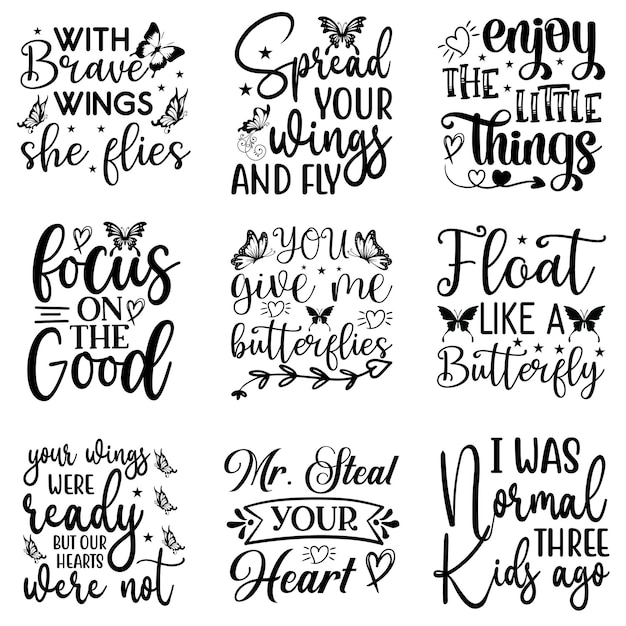 WITH
Brave
WINGS
she flies
Spread
YOUR
wings
AND FLY
enjoy
THE LITTLE
things
focus
ON
THE
Good
YOU
give me
butterflies
Float
LIKE A
Butterfly
your wings
WERE
ready
BUT OUR
HEARTS
were not
Mr. Steal
YOUR
Heart
I WAS
Normal
THREE
Kids ago